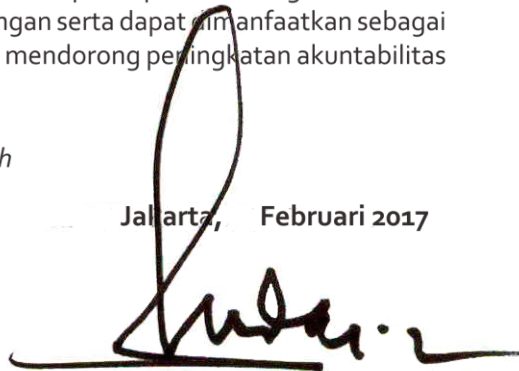 ngan serta dapat dimanfaatkan sebagai
mendorong peningkatan akuntabilitas
h
Jakarta, Februari 2017